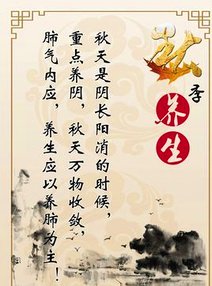 秋季
养生
秋天是阴长阳消的时候，
重点养阴，秋天万物收敛，
肺气内应，养生应以养肺为主！